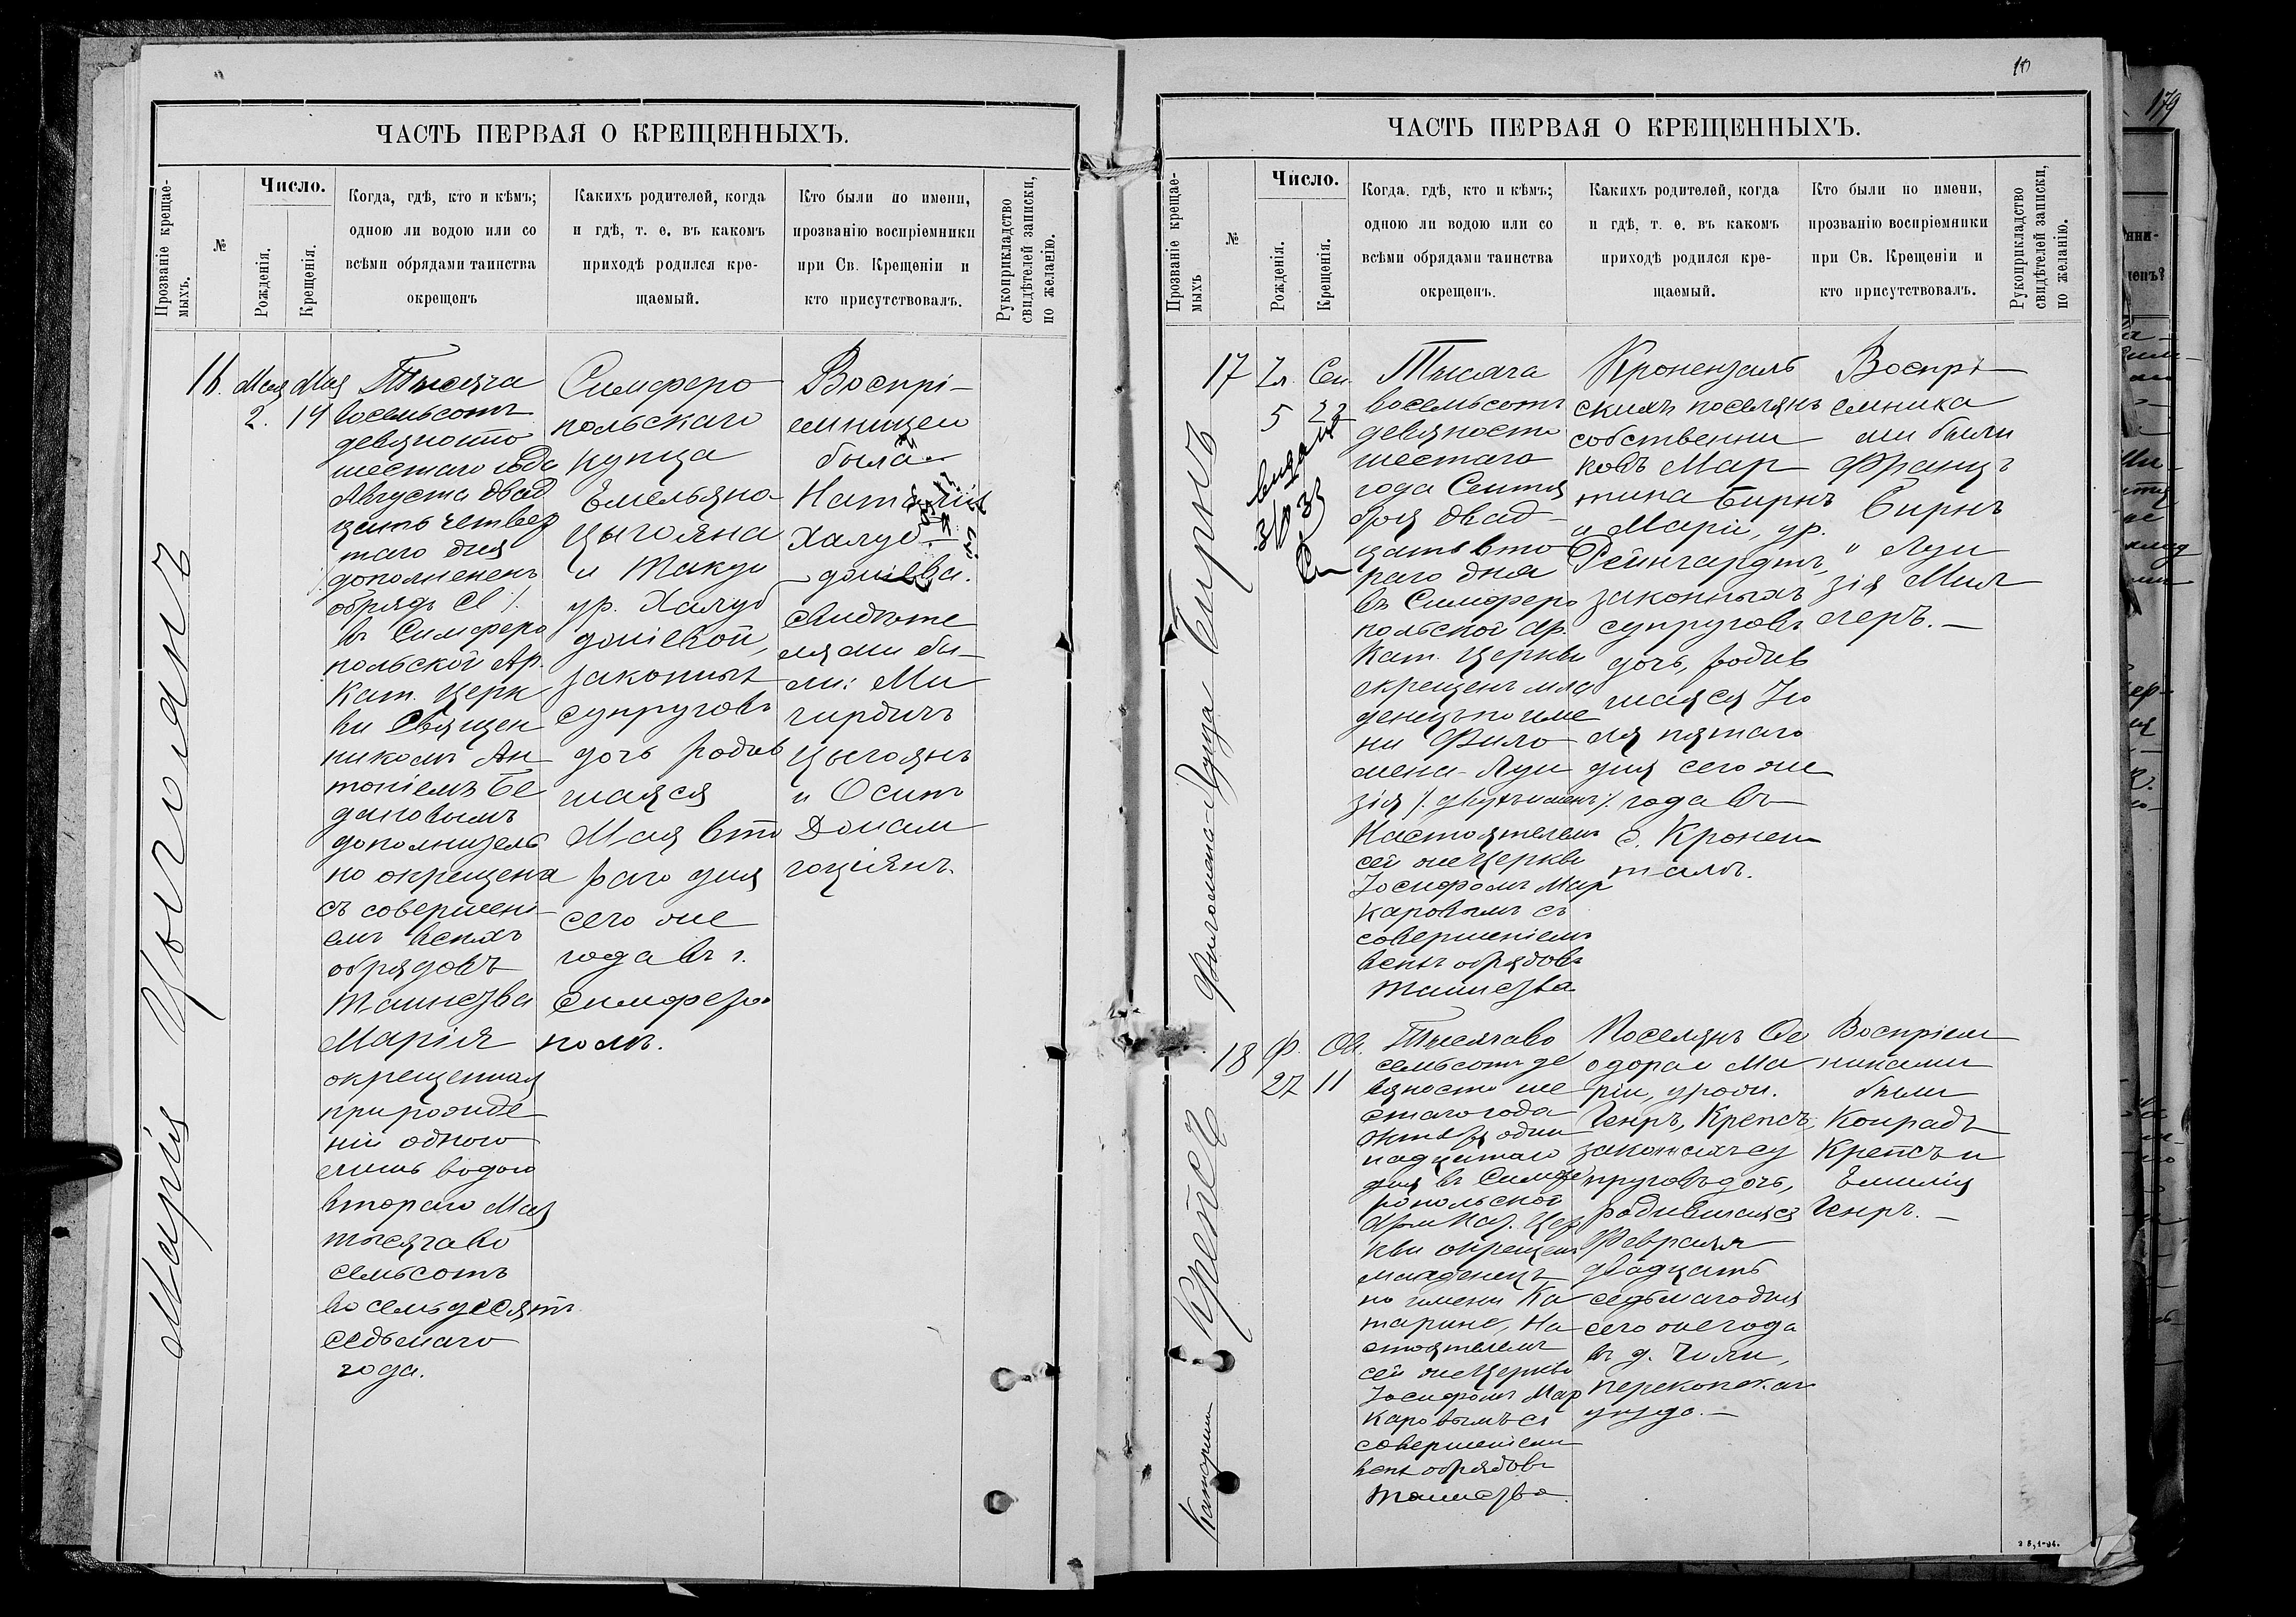 ЧАСТЬ ПЕРВАЯ О КРЕЩЕННЫХЪ.
Прозваніе крещае-
мыхъ.
№
Число.
Рожденія.
Крещенія.
Когда, гдѣ, кто и кѣмъ;
одною ли водою или со
всѣми обрядами таинства
окрещенъ
Какихъ родителей, когда
и гдѣ, т. е. въ какомъ
приходѣ родился кре-
щаемый.
Кто были по имени,
прозванію воспріемники
при Св. Крещеніи и
кто присутствовалъ.
Рукоприкладство
свидѣтелей записки,
по желанію.
Марія Цыгоянъ
16.
Мая
2.
Мая
14
Тысяча
восемьсотъ
девяносто
шестаго года
Августа двад
цать четвер
таго дня
дополненъ
обрядъ
въ Симферо
польской Ар.
Кат. Церк
ви Священ
никомъ Ан
тоніемъ Бе
дановымъ
дополнитель
но окрещена
съ совершені-
емъ всѣхъ
обрядовъ
таинства
Марія
окрещенная
при рожде
ніи одною
лишь водою
втораго Мая
тысяча во
семьсотъ
восемьдесятъ
седьмаго
года.
Симферо
польскаго
купца
Емельяна
Цыгояна
и Такуи
ур. Халуб
доніевой,
законныхъ
супруговъ
дочь родив
шаяся
Мая вто
раго дня
сего же
года въ г.
Симферо
полѣ.
Воспрі-
емницею
была
Наталія
Халуб
доніева.
Свидѣте
лями бы-
ли: Ми
гирдичъ
Цыгоянъ
и Осипъ
Донам
гоціянъ.
ЧАСТЬ ПЕРВАЯ О КРЕЩЕННЫХЪ.
10
179
Прозваніе крещае-
мыхъ
№
Число.
Рожденія.
Крещенія.
Когда. гдѣ, кто и кѣмъ;
одною ли водою или со
всѣми обрядами таинства
окрещенъ.
Какихъ родителей, когда
и гдѣ, т. е. въ какомъ
приходѣ родился кре-
щаемый.
Кто были по имени,
прозванію воспріемники
при Св. Крещеніи и
кто присутствовалъ.
Рукоприкладство
свидѣтелей записки,
по желанію.
Филомена-Луиза Бирнъ
17
Іл.
5
Сен.
22
Тысяча
восемьсотъ
девяносто
шестаго
года Сентя
бря двад-
цать вто
раго дня
въ Симферо
польской Ар.
Кат. Церкви
окрещенъ мла
денецъ по име
ни Фило-
мена-Луи
зія
Настоятелемъ
сей же Церкви
Іосифомъ Мар
каровымъ съ
совершеніемъ
всѣхъ обрядовъ
таинства
Кроненталь
скихъ поселянъ
собственни
ковъ Мар-
тина Бирнъ
и Маріи, ур.
Рейнгардтъ,
законныхъ
супруговъ
дочь, родив
шаяся Ію
ля пятаго
дня сего же
года въ
с. Кронен
талѣ.
Воспрі-
емника
ми были
Францъ
Бирнъ
и Луи
зія Мил
леръ.
Катерина Крепсъ
18
Ф.
27
Ок.
11
Тысяча во
семьсотъ де
вяносто ше
стаго года
Октября один
надцатаго
дня въ Симфе
ропольской
Арм. Кат. Цер
кви окрещенъ
младенецъ
по имени Ка
тарина, На
стоятелемъ
сей же Церкви
Іосифомъ Мар
каровымъ съ
совершеніемъ
всѣхъ обрядовъ
таинства.
Поселянъ Ѳе
одора и Ма
ріи, урожд.
Генръ, Крепсъ,
законныхъ су
пруговъ дочь,
родившаяся
Февраля
двадцать
седьмаго дня
сего же года
въ д.
Перекопскаго
уѣзда.
Воспріем
никами
были
Конрадъ
Крепсъ и
Эмилія
Генръ.